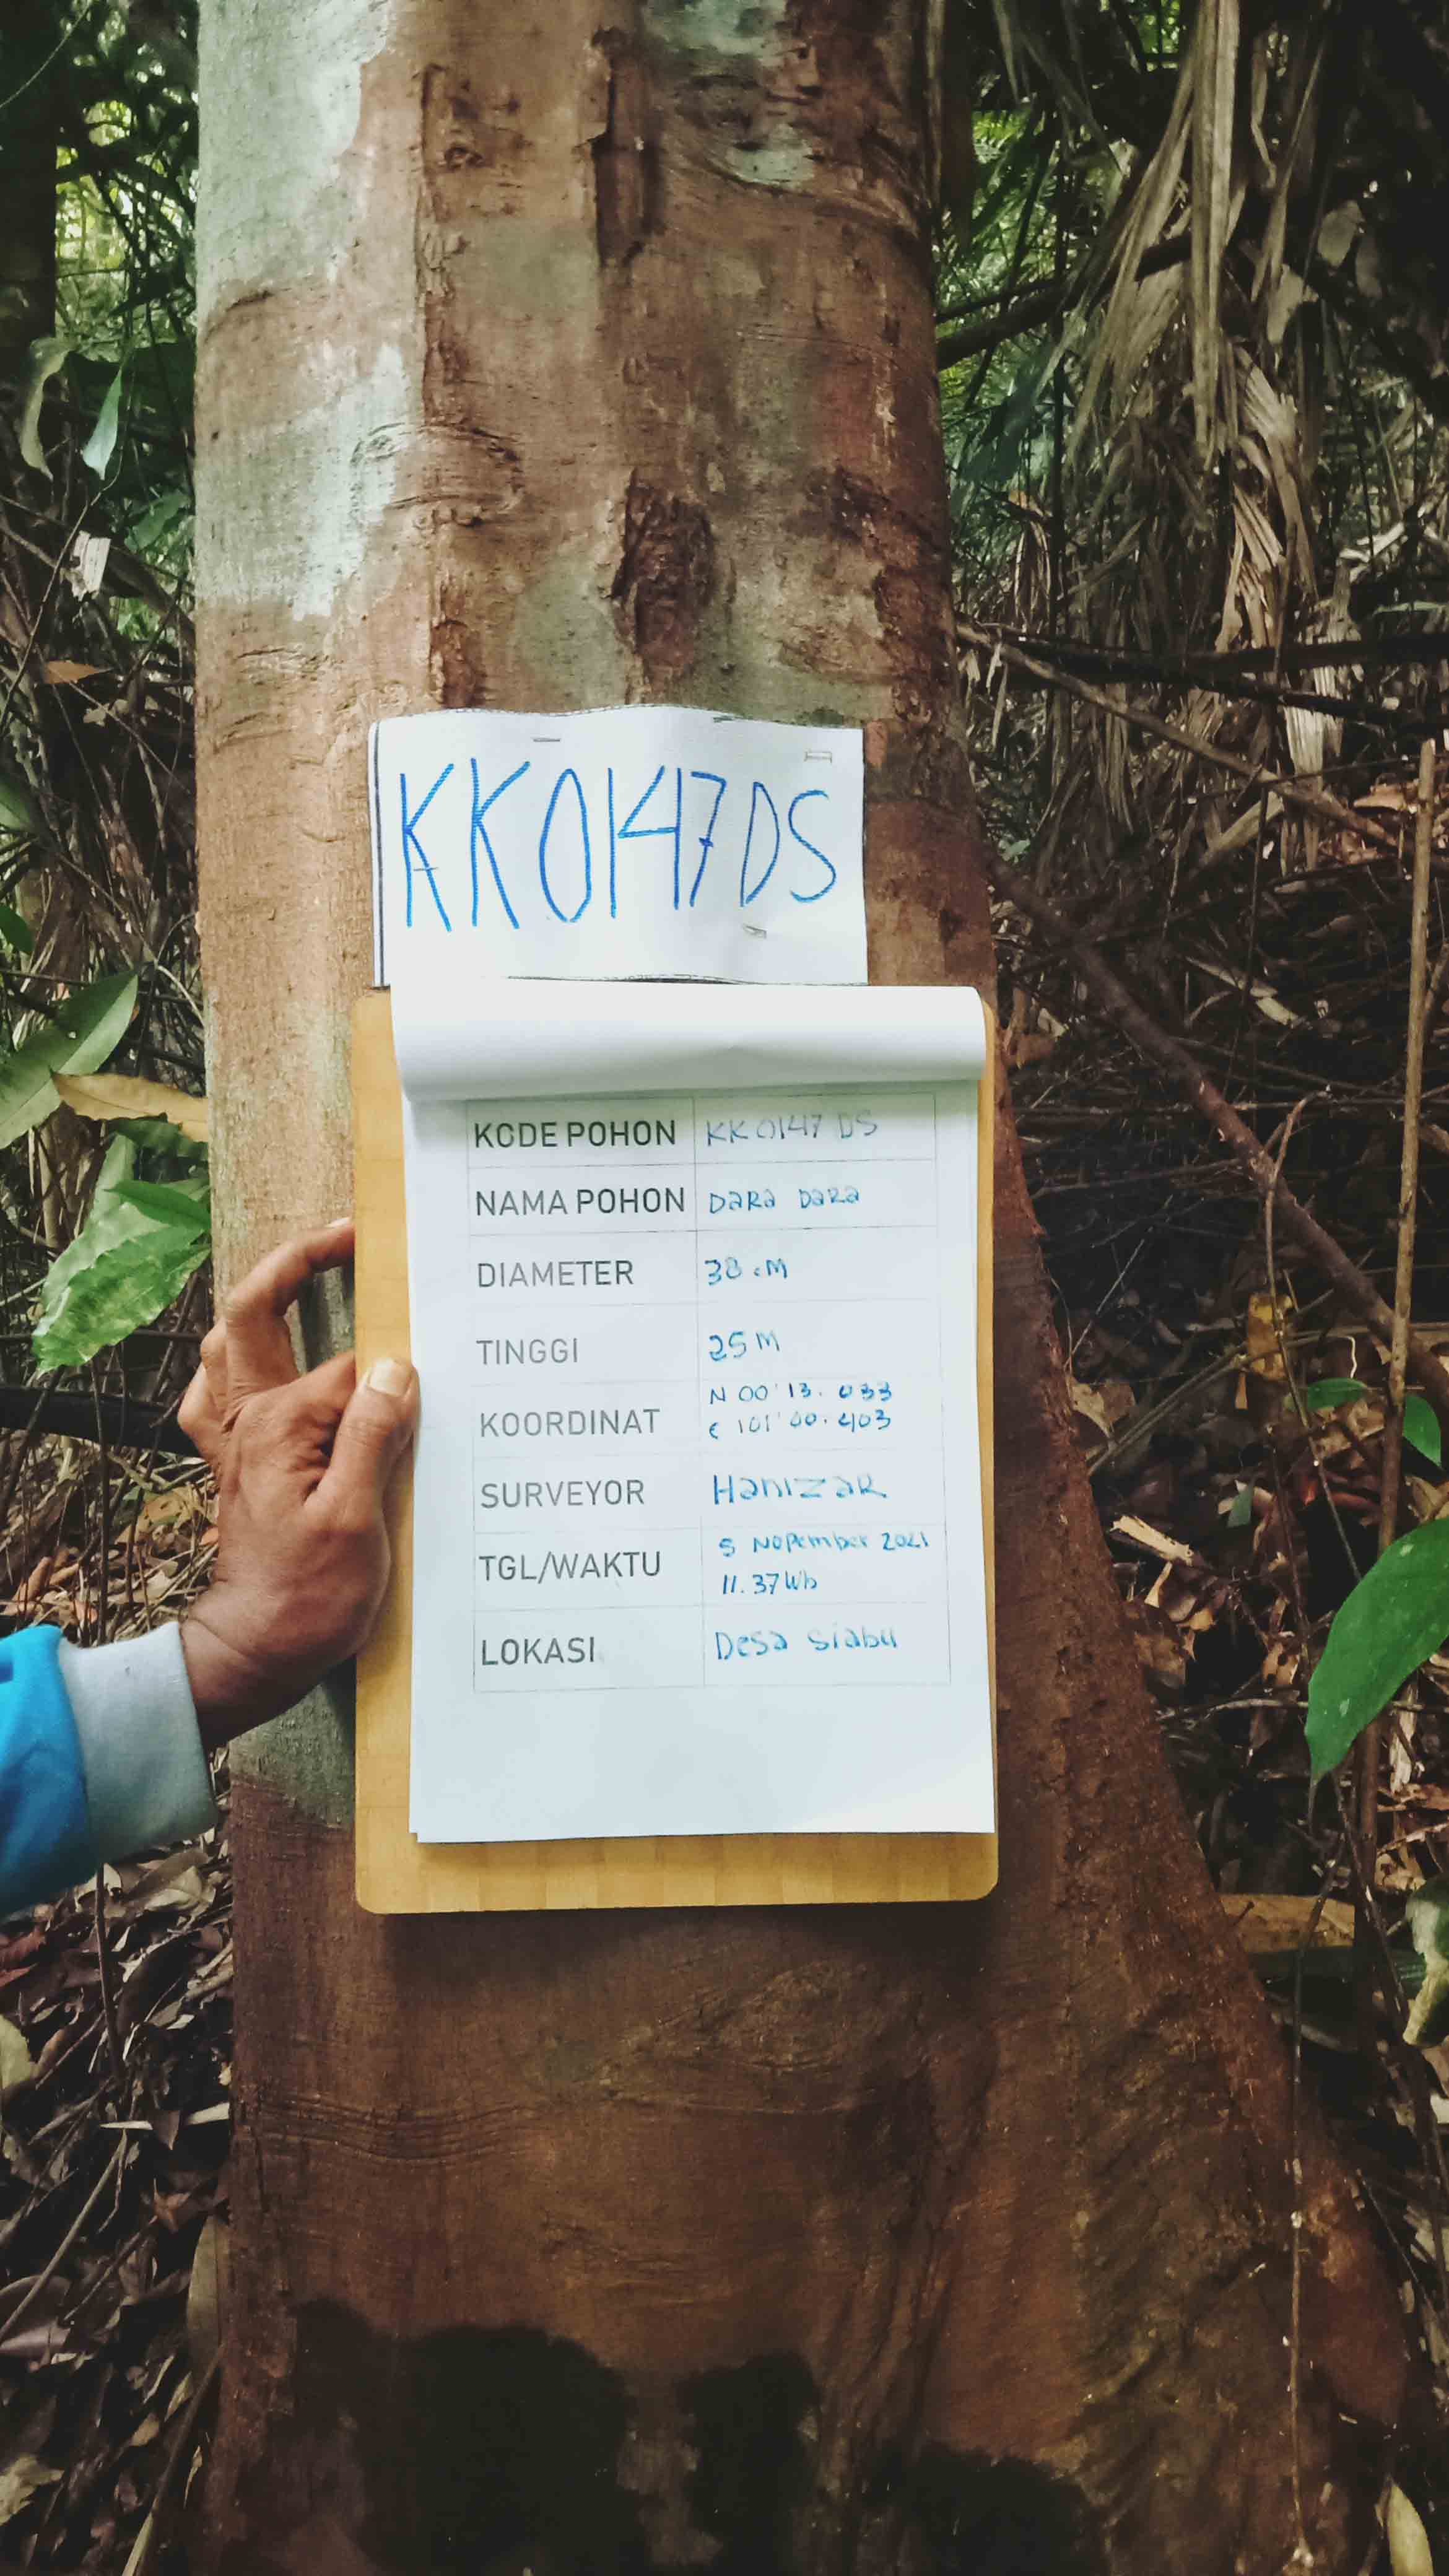 KK0147DS
KODE POHON KK0147 DS
NAMA POHON Dara Dara
DIAMETER 38 cM
TINGGI 25 M
KOORDINAT N 00' 13. 033
E 101' 00. 403
SURVEYOR Hanizar
TGL/WAKTU 5 Nopember 2021
11.37 Wib
LOKASI Desa Siabu